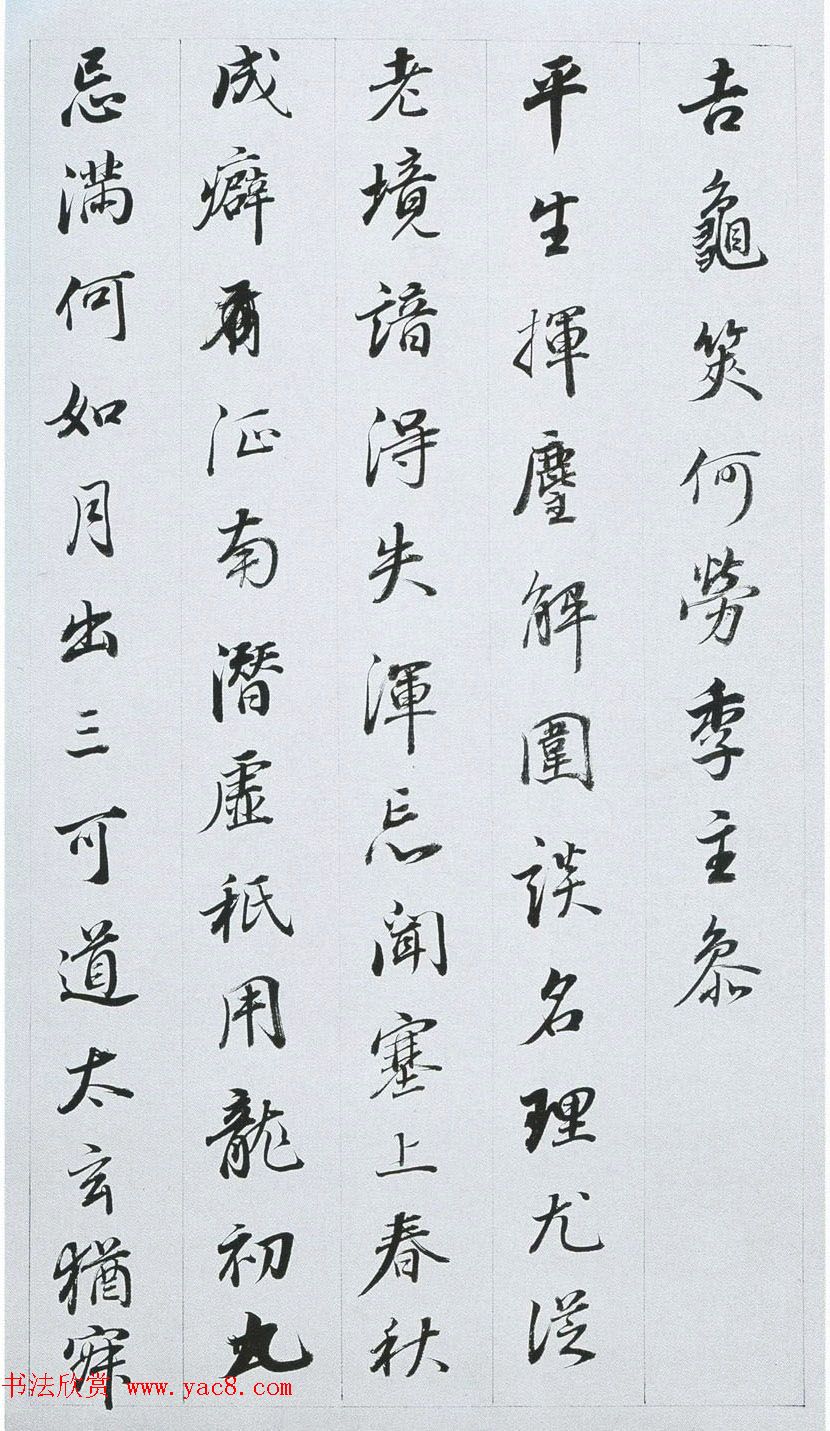 吉龜筴何勞季主叅
平生揮麈解圍談名理尤從
老境諳得失渾忘聞塞上春秋
成癖有征南潛虛秖用龍初九
忌滿何如月出三可道太玄猶寂
书法欣赏 www.yac8.com